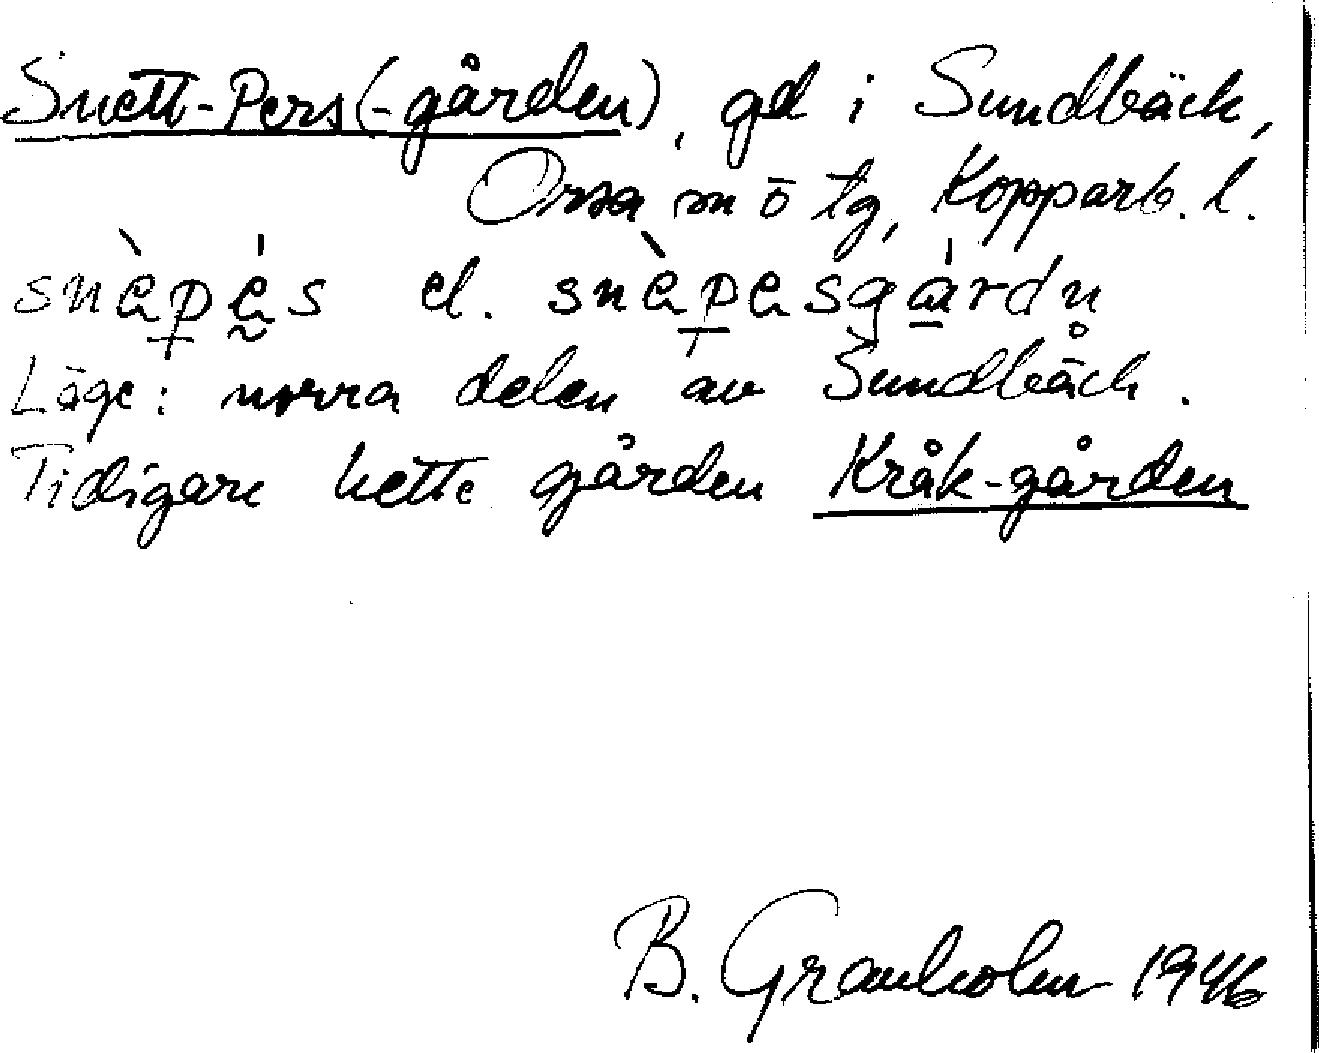 Snett-Pers(-gården), gd i Sundbäck,
Orsa m ö tg, Kopparb. l.
snèpés el. snèpesgárdn
Läge: norra delen av Sundbäck.
Tidigare hette gården Kråk-gården
B. Granholm 1946